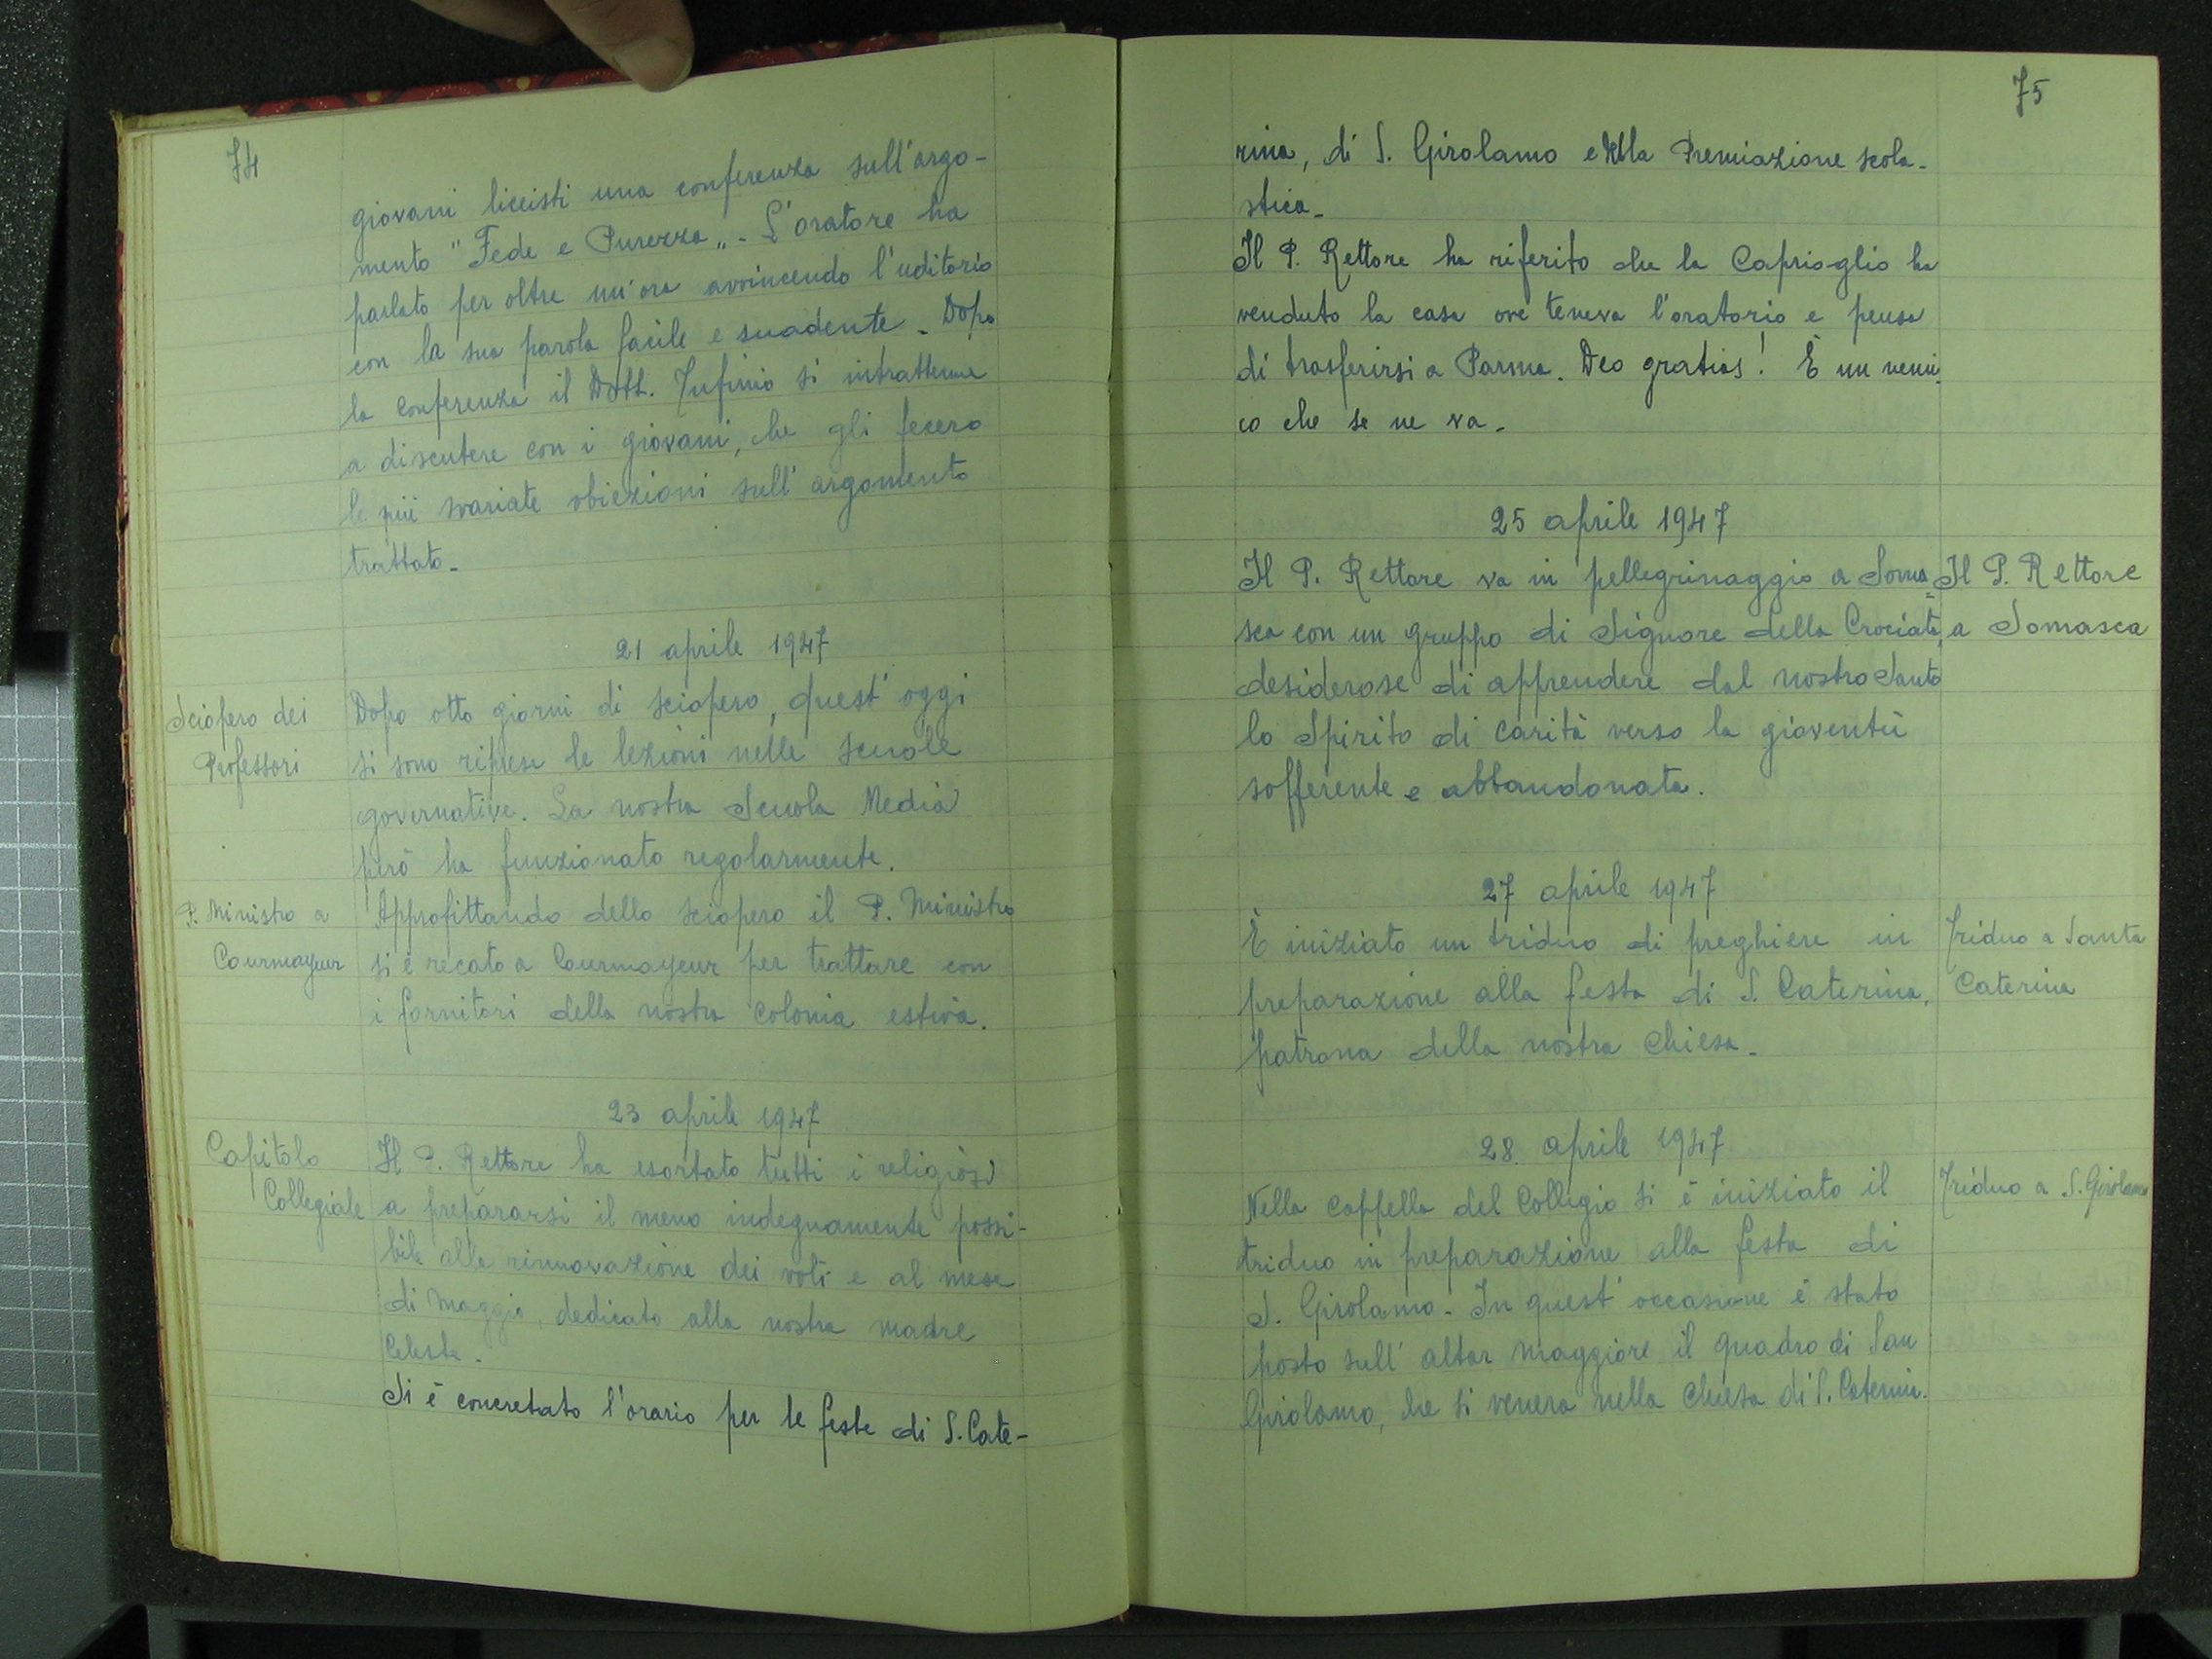 74
giovani liceisti una conferenza sull'argo-
mento "Fede e Purezza„- L'oratore ha
parlato per oltre un'ora avvincendo l'uditorio
con la sua parola facile e suadente. Dopo
la conferenza il Dott. si intrattenne
a discutere con i giovani, che gli fecero
le più svariate obiezioni sull'argomento
trattato.
21 aprile 1947
Sciopero dei
Professori
Dopo otto giorni di sciopero, quest'oggi
si sono riprese le lezioni nelle scuole
governative. La nostra Scuola Media
però ha funzionato regolarmente.
P. Ministro a
Courmayeur
Approfittando dello sciopero il P. Ministro
si è recato a Courmayeur per trattare con
i fornitori della nostra colonia estiva.
23 aprile 1947
Capitolo
Collegiale
Il P. Rettore ha esortato tutti i religiosi
a prepararsi il meno indegnamente possi-
bile alla rinnovazione dei voti e al mese
di Maggio, dedicato alla nostra madre
Celeste.
Si è concretato l'orario per le feste di S. Cate-
75
rina, di S. Girolamo e della Premiazione scola-
stica.
Il P. Rettore ha riferito che la Caprioglio ha
venduto la casa ove teneva l'oratorio e pensa
di trasferirsi a Parma. Deo gratias! È un nemi-
co che se ne va.
25 aprile 1947
Il P. Rettore va in pellegrinaggio a Soma=
sca con un gruppo di Signore della Crociata,
desiderose di apprendere dal nostro Santo
lo Spirito di carità verso la gioventù
sofferente e abbandonata.
Il P. Rettore
a Somasca
27 aprile 1947
È iniziato un triduo di preghiere in
preparazione alla festa di S. Caterina,
patrona della nostra Chiesa.
Triduo a Santa
Caterina
28 aprile 1947
Nella cappella del Collegio si è iniziato il
triduo in preparazione alla festa di
S. Girolamo. In quest'occasione è stato
posto sull'altar maggiore il quadro di San
Girolamo, che si venera nella Chiesa di S. Caterin.
Triduo a S. Girolamo